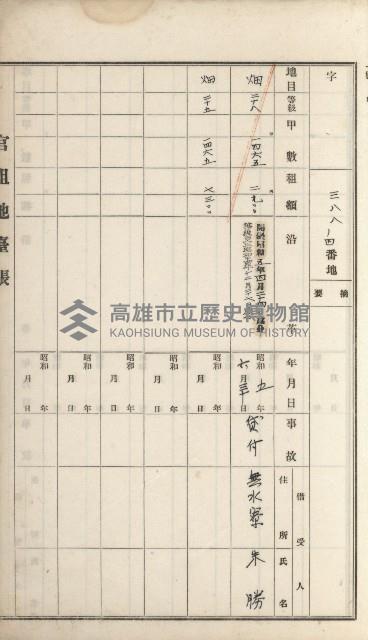 字
三八八ノ四番地
摘要
地目
等級
甲數
租額
沿革
年月日
事故
借受人
住所
氏名
畑
二十八
一四六五
二九〇〇
昭和五年
六月
貸付
無水寮
朱勝
畑
三十五
一四六五
昭和
年
月
日
昭和
年
月
日
昭和
年
月
日
昭和
年
月
日
昭和
年
月
日
官租地臺帳
高雄市立歷史博物館
KAOHSIUNG MUSEUM OF HISTORY